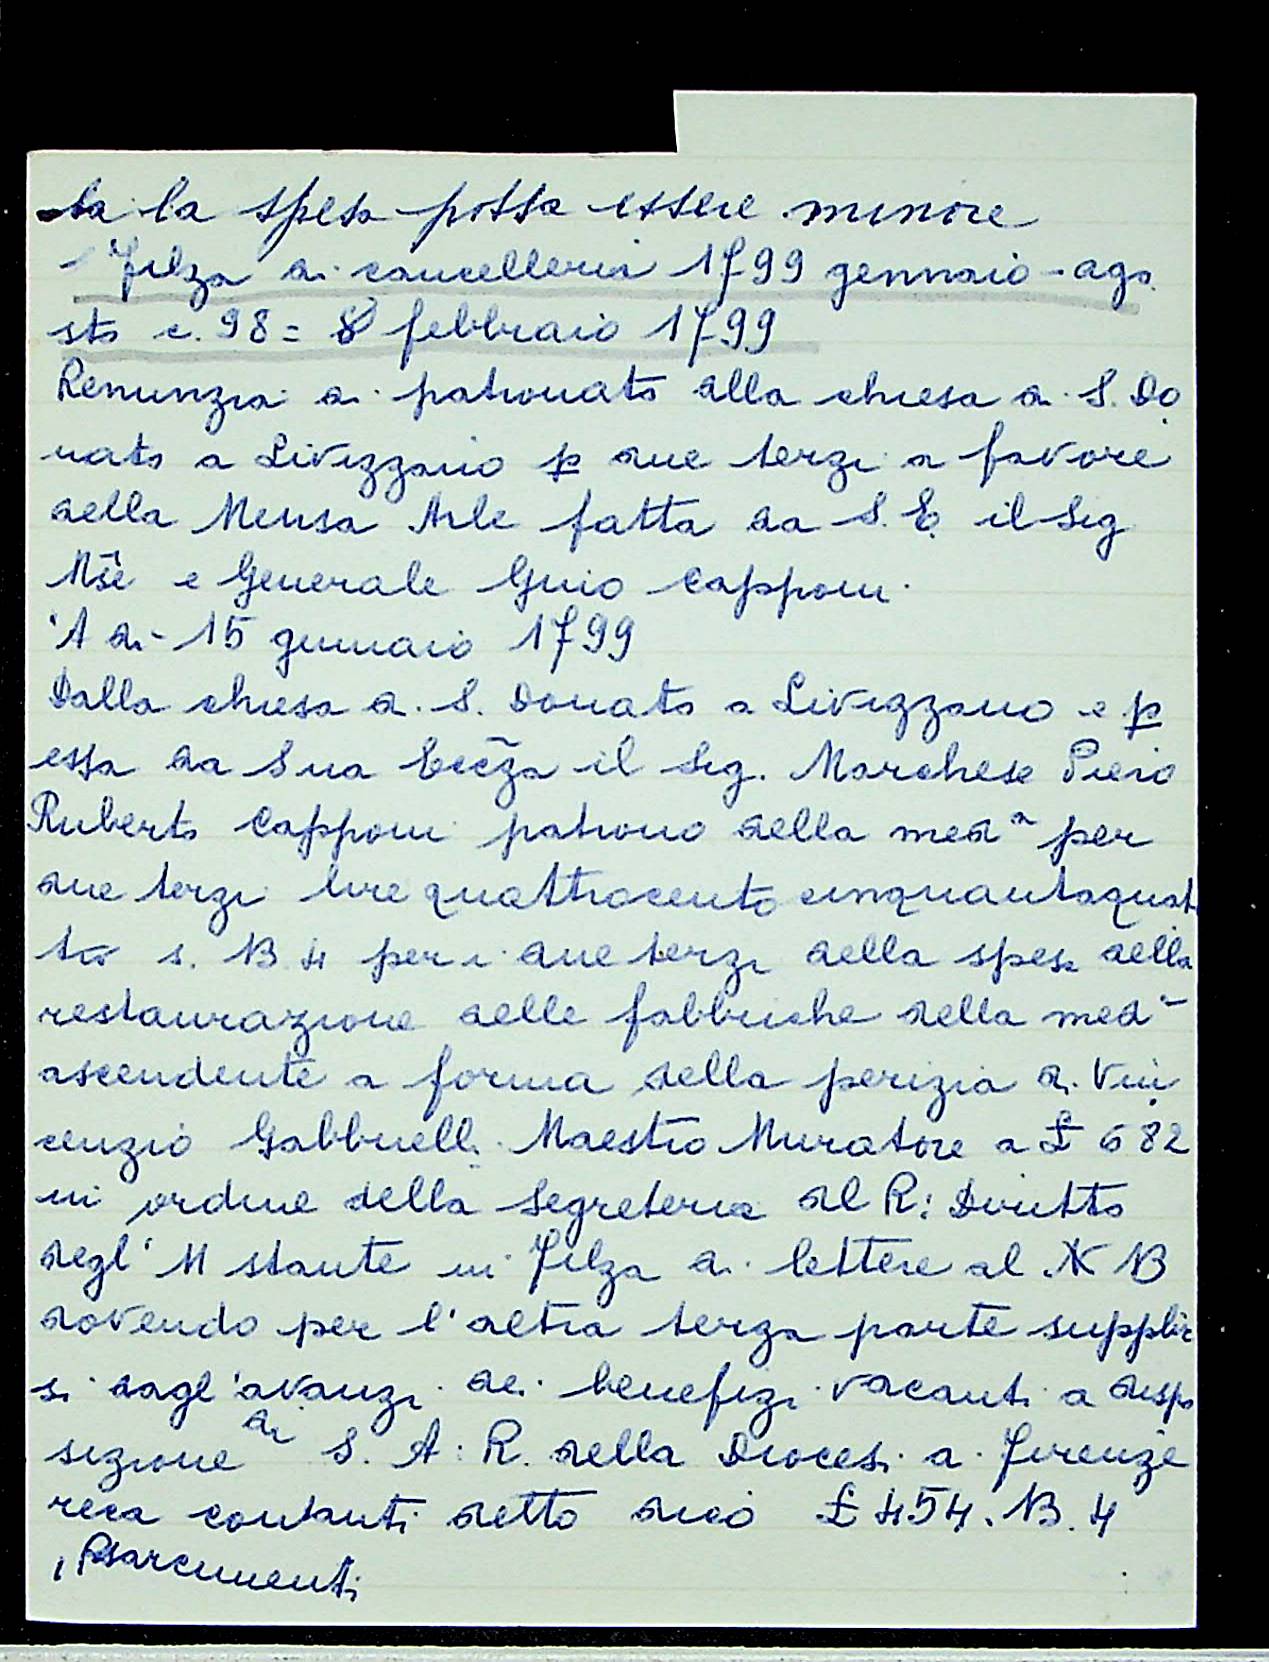 ta la spesa possa essere minore
Filza di cancelleria 1799 gennaio-ago
sto c. 98 = 8 febbraio 1799
Renunzia di patronato alla chiesa di S. Do
nato a Livizzano p due terzi a favore
della Mensa Arle fatta da S. E. il Sig
Mse e Generale Gino Capponi.
A di - 15 gennaio 1799
Dalla chiesa di S. Donato a Livizzano e p
essa da Sua Eccza il Sig. Marchese Piero
Ruberto Capponi patrono della meda per
due terzi lire quattrocento cinquantaquat
tro s. 13 4 per i due terzi della spesa della
restaurazione delle fabbriche della meda
ascendente a forma della perizia di Vin
cenzio Gabbrielli Maestro Muratore a £ 682
in ordine della Segreteria del R: Diritto
degl' 11 stante in Filza di lettere al N 13
dovendo per l'altra terza parte supplir
si dagl'avanzi dei benefizi vacanti a dispo
sizione di S. A: R. della Diocesi di Firenze
reca contanti detto dico £ 454. 13. 4
Risarcimenti